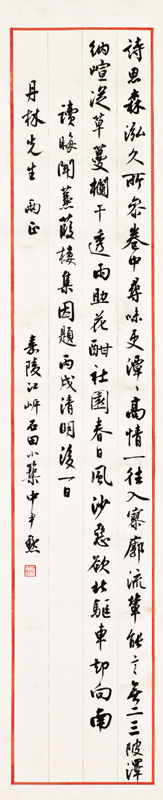 詩思森泓久所參卷中尋味更潭〻高情一往入寥廓流輩能言無二三陂澤
納喧從草蔓欄干透雨助花酣社園春日風沙惡欲北驅車却向南
讀晦聞蒹葭樓集因題丙戌清明後一日
丹林先生兩正 嘉陵江岸石田小築中尹默